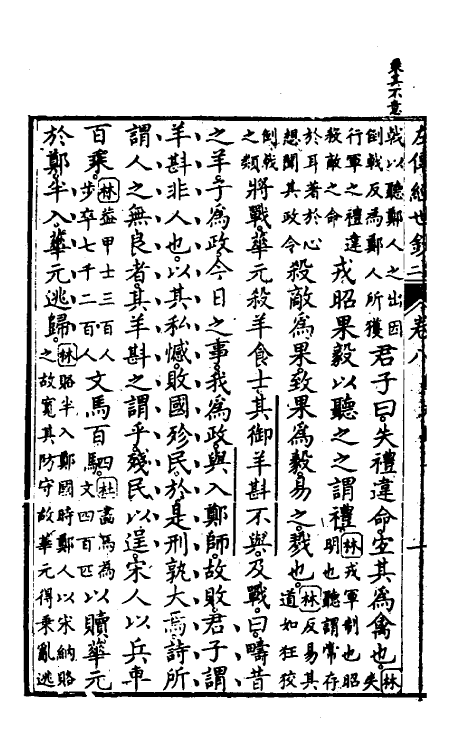 乘其不意
左傳經世鈔二 卷八
戟以聽鄭人之出因倒戟反為鄭人所獲君子曰失禮違命宜其為禽也林失
行軍之禮違殺敵之命戎昭果毅以聽之之謂禮林戎軍制也昭明也聽謂常存
於耳著於心想聞其政令殺敵為果致果為毅易之戮也林反易其道如狂狡
倒戟之類將戰華元殺羊食士其御羊斟不與及戰曰疇昔
之羊子為政今日之事我為政與入鄭師故敗君子謂
羊斟非人也以其私憾敗國殄民於是刑孰大焉詩所
謂人之無良者其羊斟之謂乎殘民以逞宋人以兵車
百乘林蓋甲士三百人步卒七千二百人文馬百駟杜畫馬為文四百匹以贖華元
於鄭半入華元逃歸林賂半入鄭國時鄭人以宋納賂之故寬其防守故華元得乘亂逃